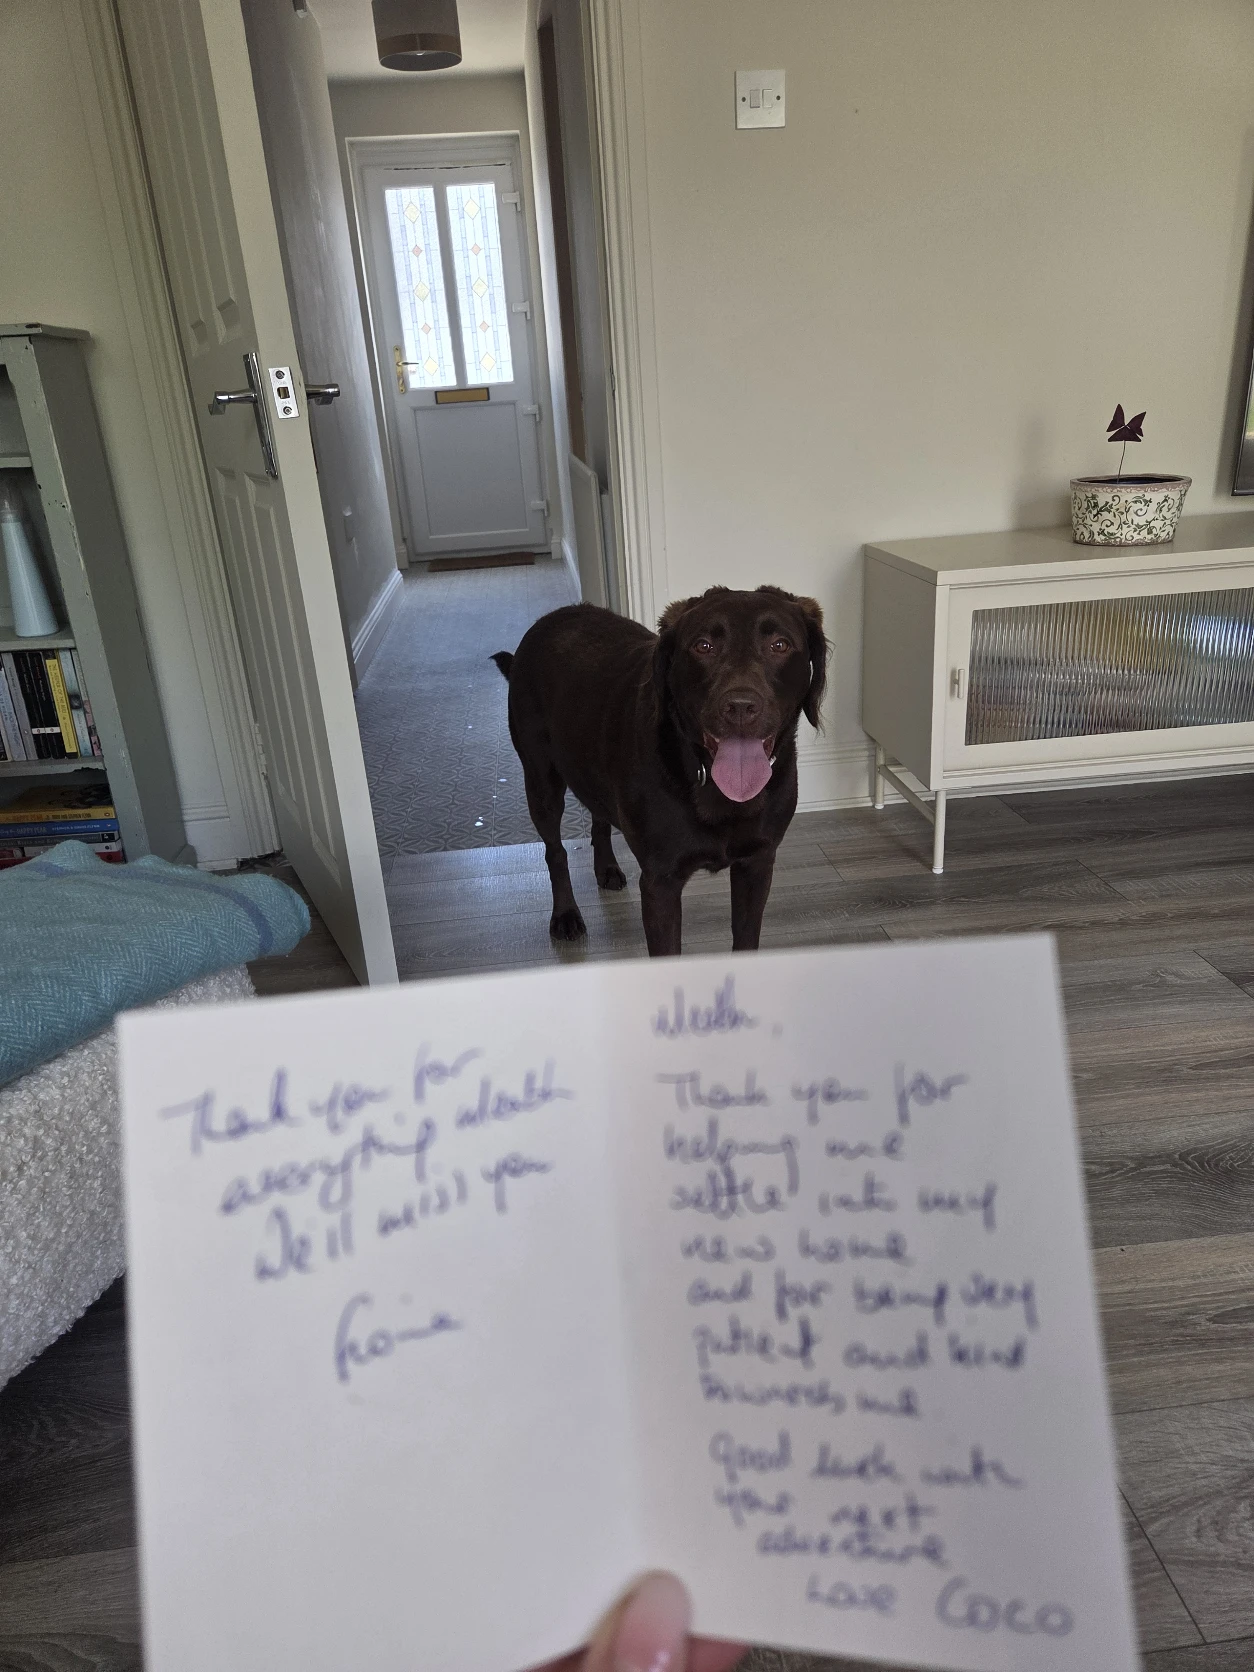 Thank you for
everything
We'll miss you
Thank you for
helping me
settle into my
new home
and for being very
patient and kind
towards me
Good luck with
your next
adventure
Love COCO